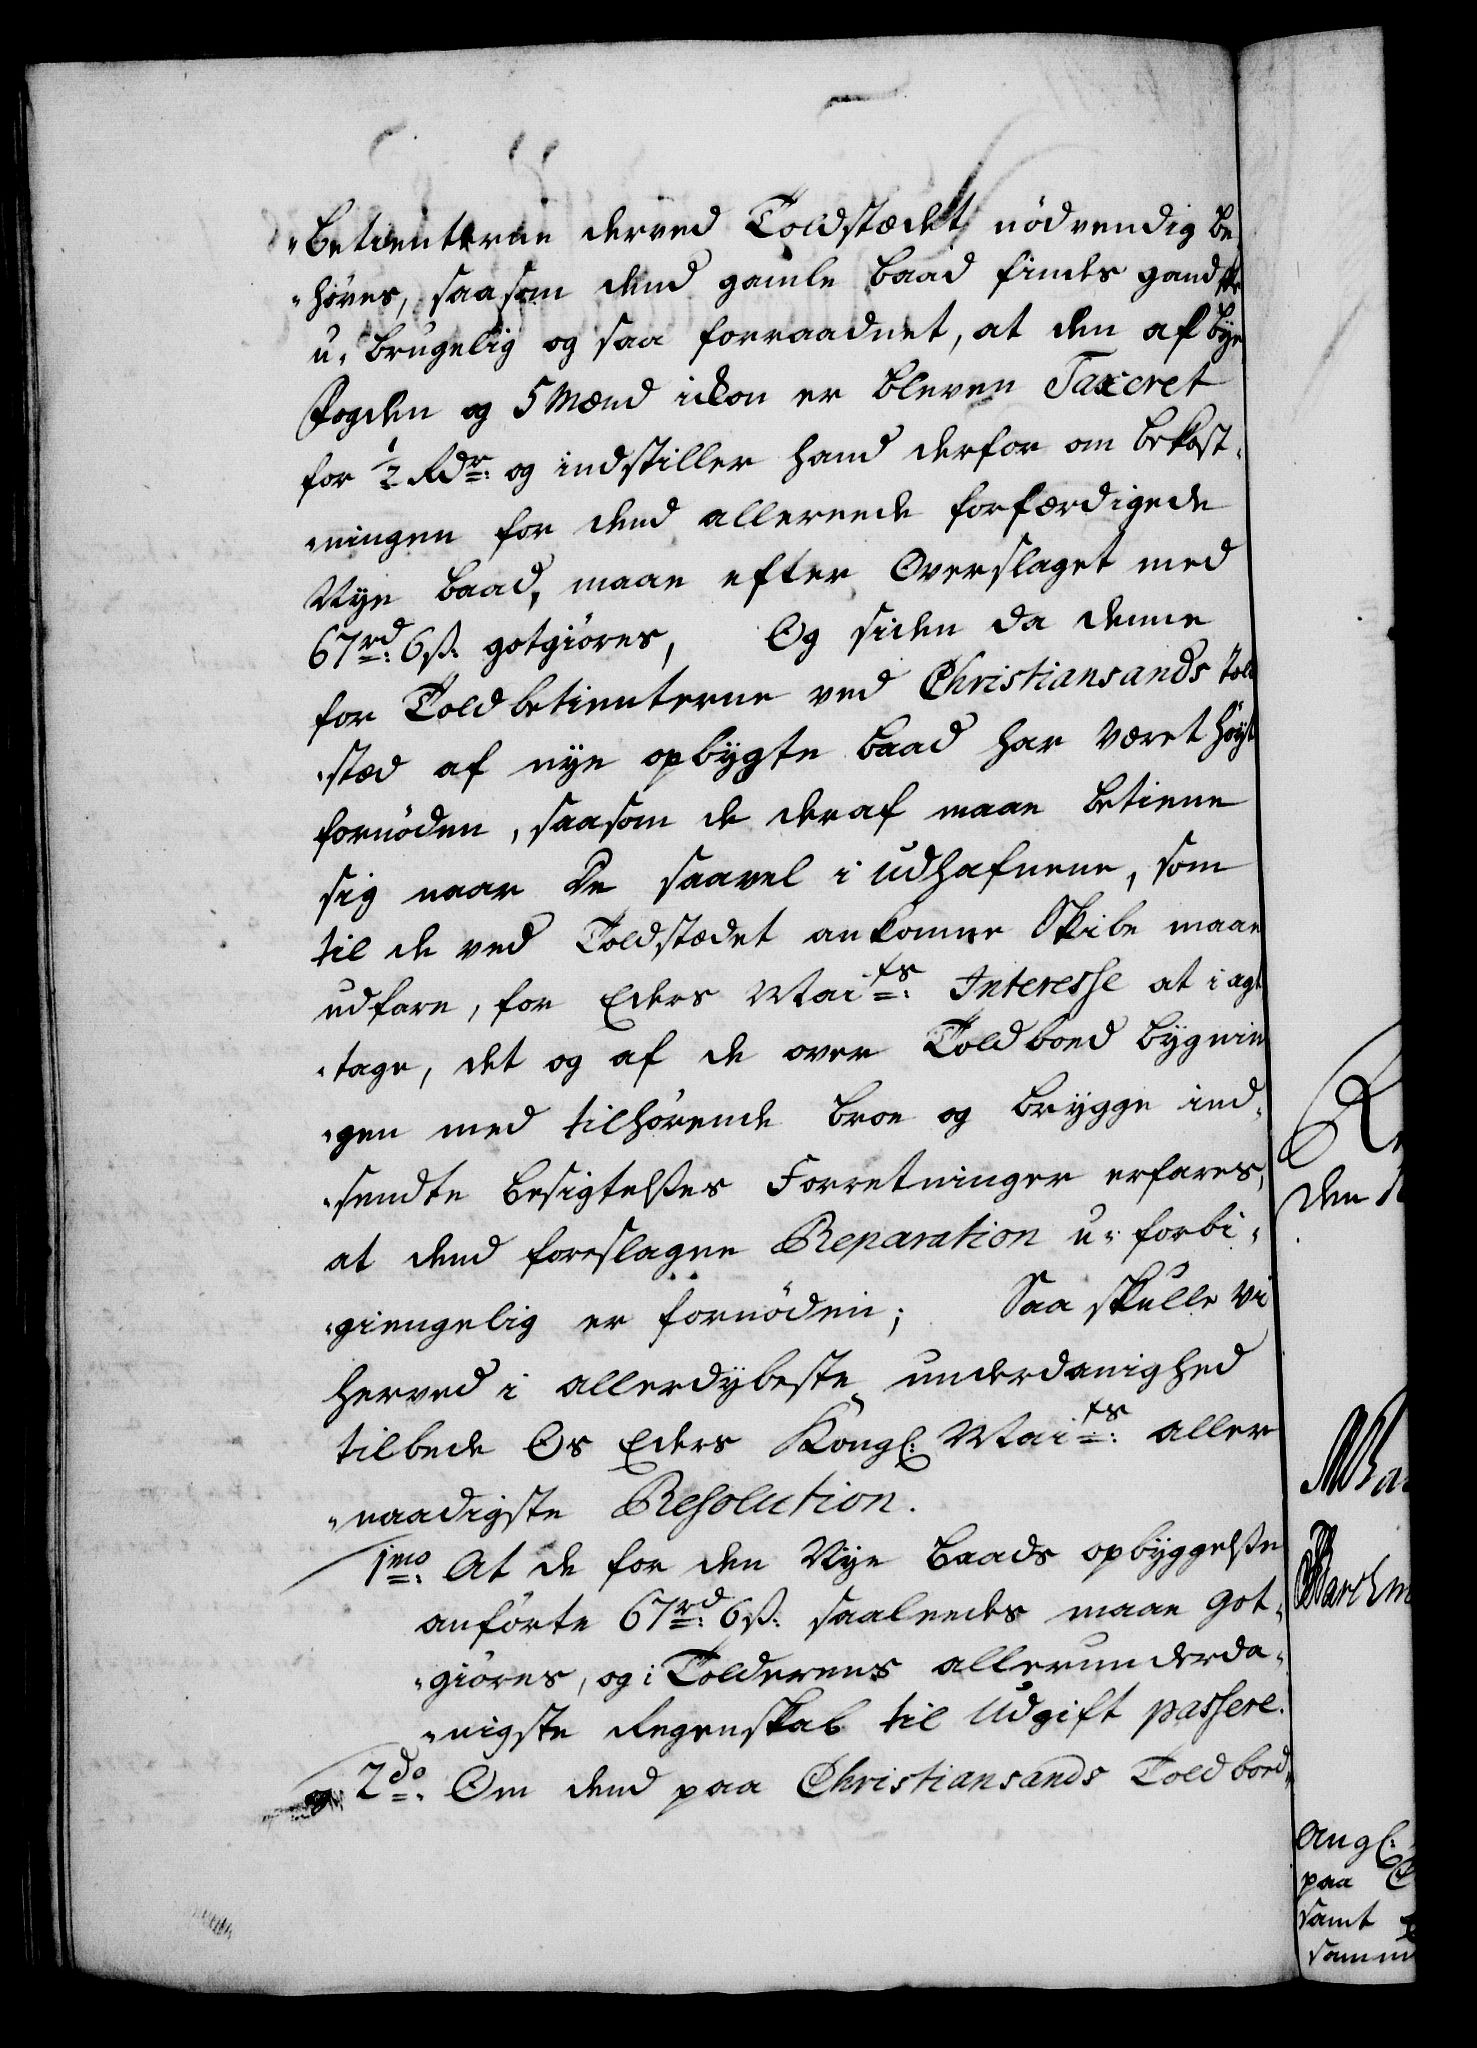 "betienterne derved Toldstædet nödvendig be
"höves, saasom dend gamle baad findes gandske
u-brugelig og saa forraadnet, at den af bye
Fogden og 5 Mænd ickon er bleven Taxeret
for ½ Rdr: og indstiller hand derfor om bekost-
"ningen for dend allerede forfærdigede
Nye baad, maae efter Overslaget med
67rd: 6ß. gotgiöres, Og siden da denne
for Toldbetienterne ved Christiansands Told
"stæd af nye opbygte baad har været höyt
fornöden, saasom de deraf maae betiene
sig naar de saavel i udhafnene, som
til de ved Toldstædet ankomne Skibe maae
udfare, for Eders Maits: Interesse at i agt
"tage, det og af de over Toldboed bygnin
"gen med tilhörende broe og brygge ind-
"sendte besigtelses Forretninger erfares,
at dend foreslagne Reparation u-forbi-
"giengelig er fornöden; Saa skulle vi
herved i allerdybeste underdanighed
tilbede Os Eders Kongl: Maits: aller
"naadigste Resolution.
1mo: At de for den Nye baads opbyggelse
anförte 67rd: 6ß. saaleedes maae got-
"giöres, og i Tolderens allerunderda-
"nigste Regenskab til Udgift passere.
og 2do. Om dend paa Christiansands Toldboed
den
Angl:
paa
samt